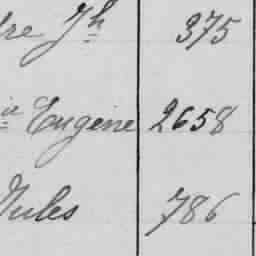 dre Jh 375
ie Eugène 2658
Jules 786